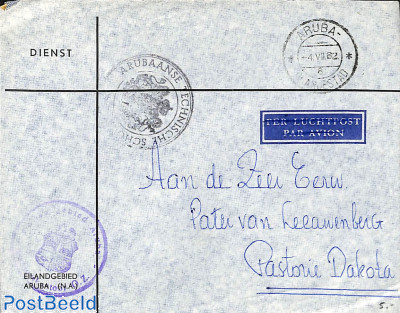 DIENST
ARUBA-
4.VII.62
6
ARUBAANSE TECHNISCHE SCHOOL
PER LUCHTPOST
PAR AVION
Aan de Zeer Eerw.
Pater van Leeuwenberg
Pastorie Dakota
EILANDGEBIED
ARUBA (N.A.)
PostBeeld
5.-